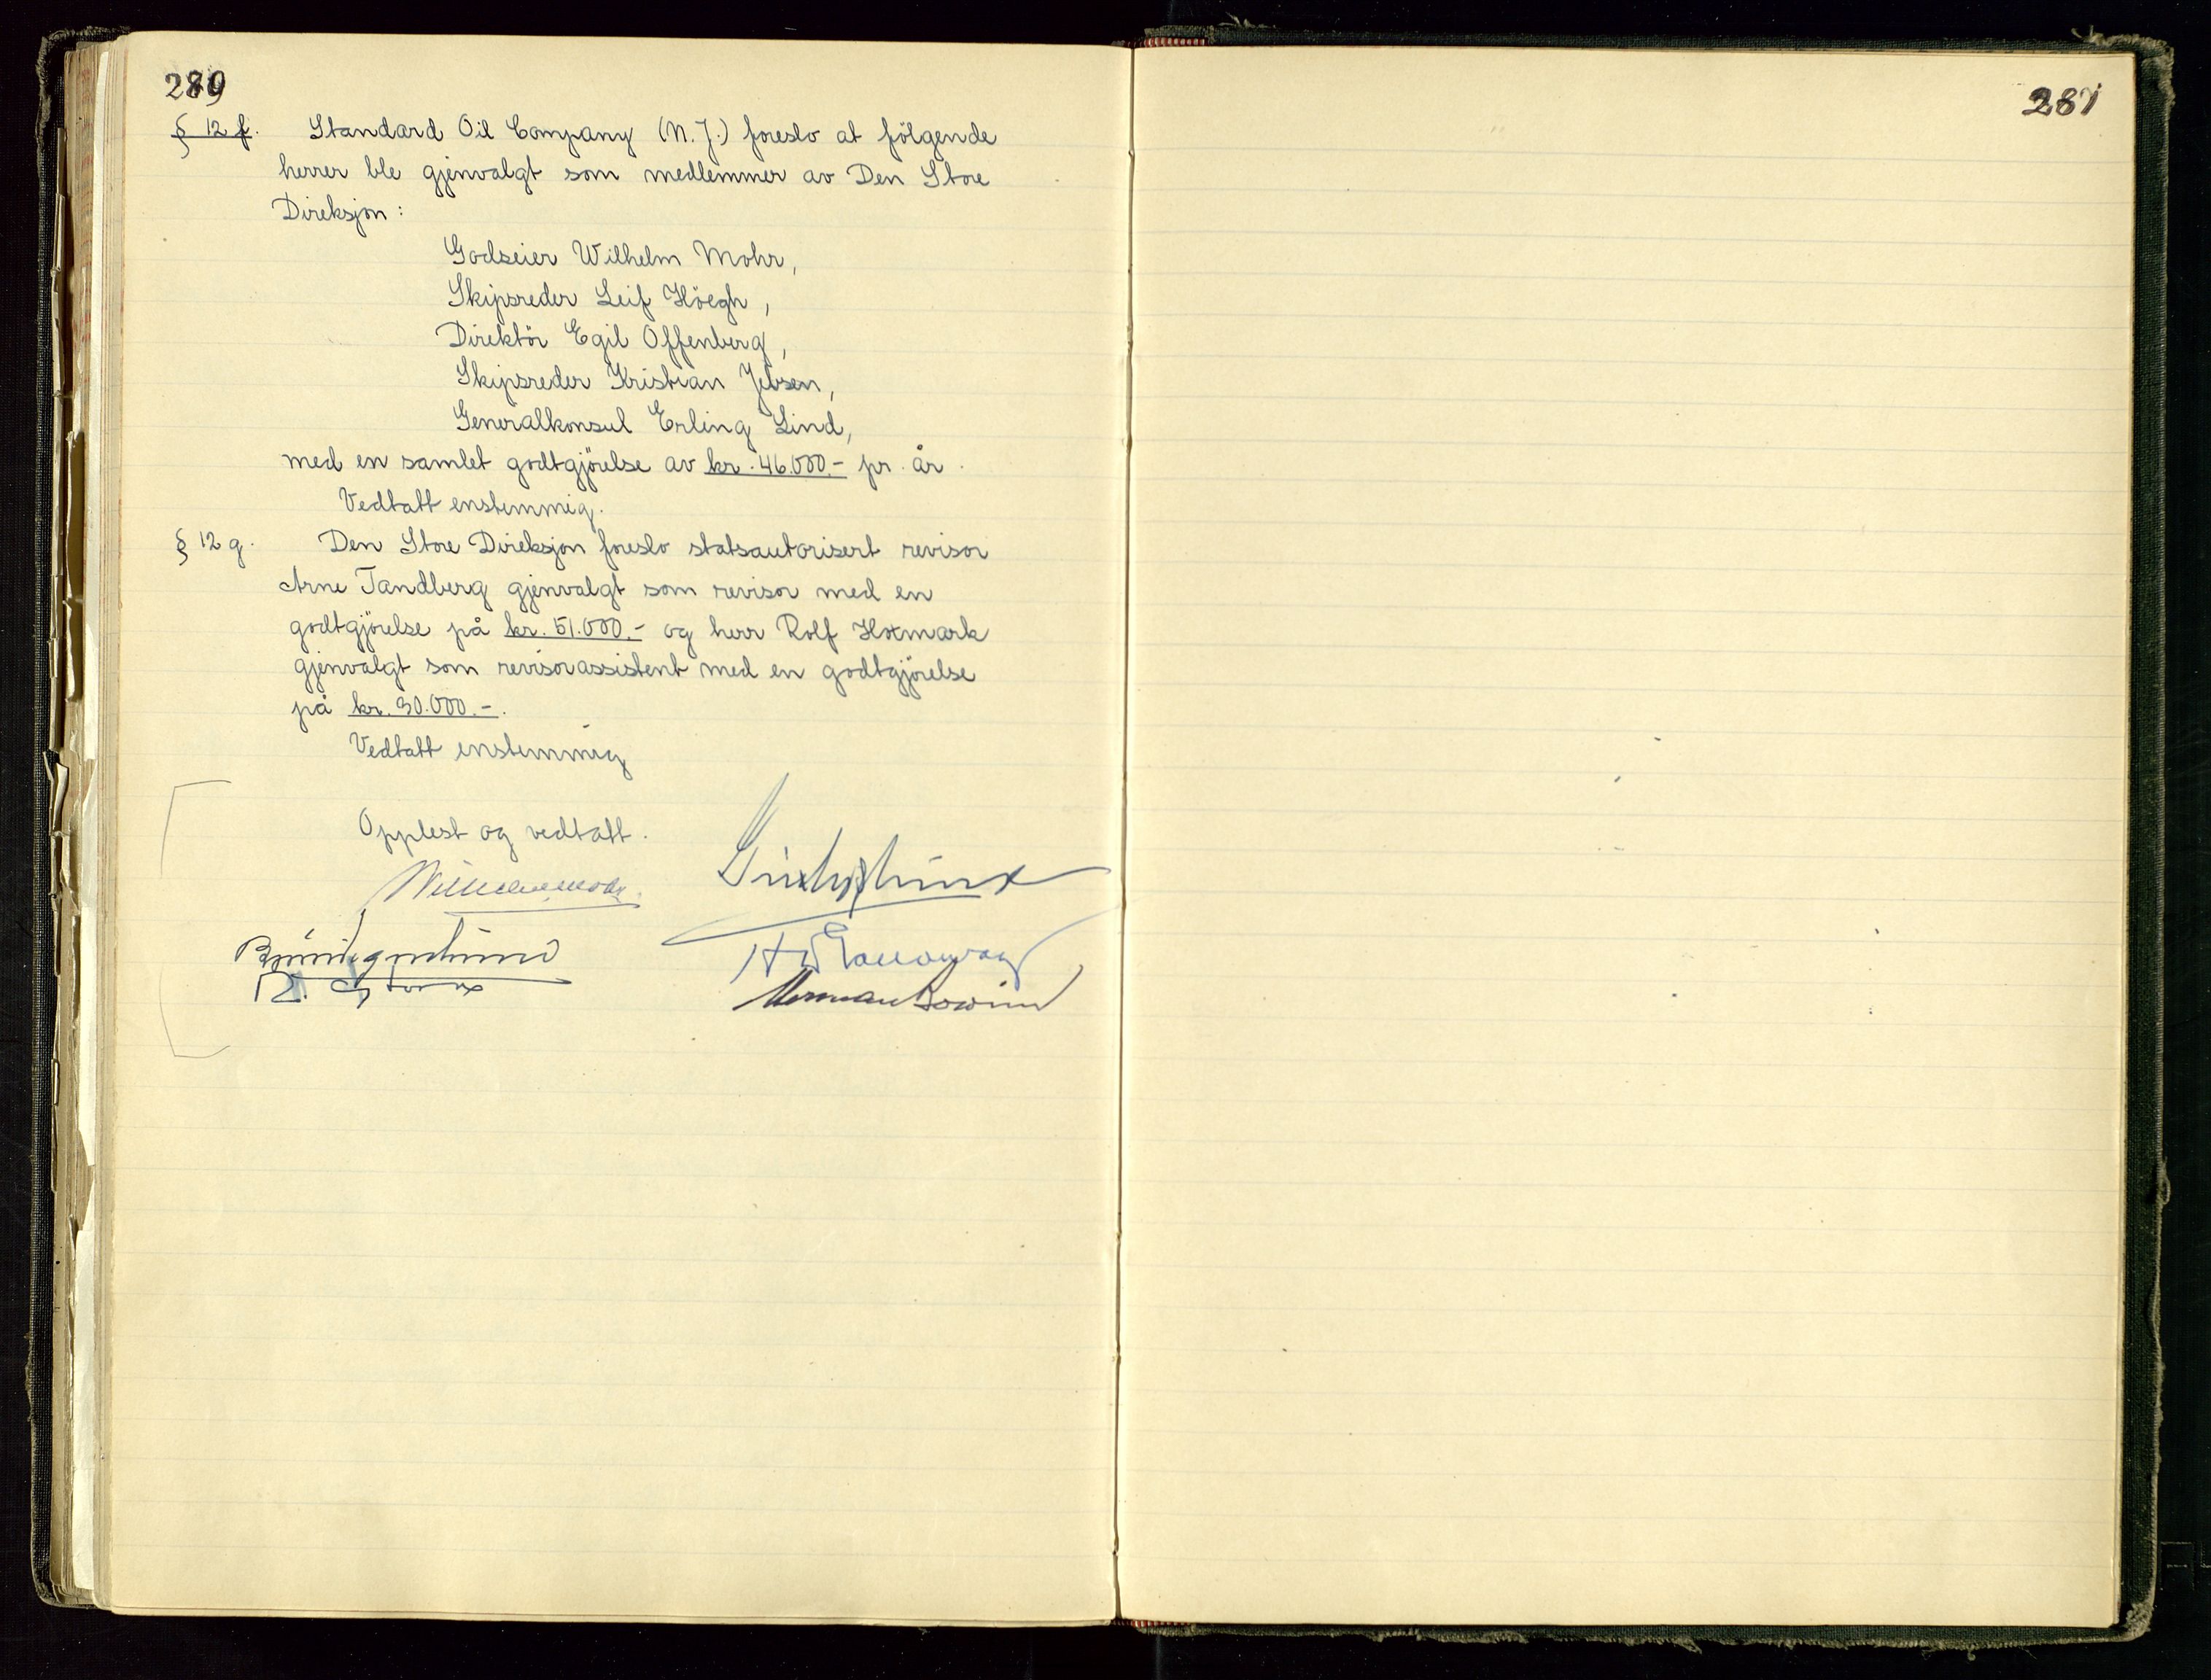 280
§ 12 f. Standard Oil Company (N.J.) foreslo at følgende
herrer ble gjenvalgt som medlemmer av Den Store
Direksjon :
Godseier Wilhelm Mohr,
Skipsreder Leif Höegh ,
Direktör Egil Offenberg ,
Skipsreder Kristian Jebsen,
Generalkonsul Erling Lind,
med en samlet godtgjörelse av kr. 46.000.- pr. år.
Vedtatt enstemmig.
§ 12 g. Den Store Direksjon foreslo statsautorisert revisor
Arne Tandberg gjenvalgt som revisor med en
godtgjörelse på kr. 51.000.- og herr Rolf Hoxmark
gjenvalgt som revisorassistent med en godtgjörelse
på kr. 30.000.-.
Vedtatt enstemmig
Opplest og vedtatt.
281